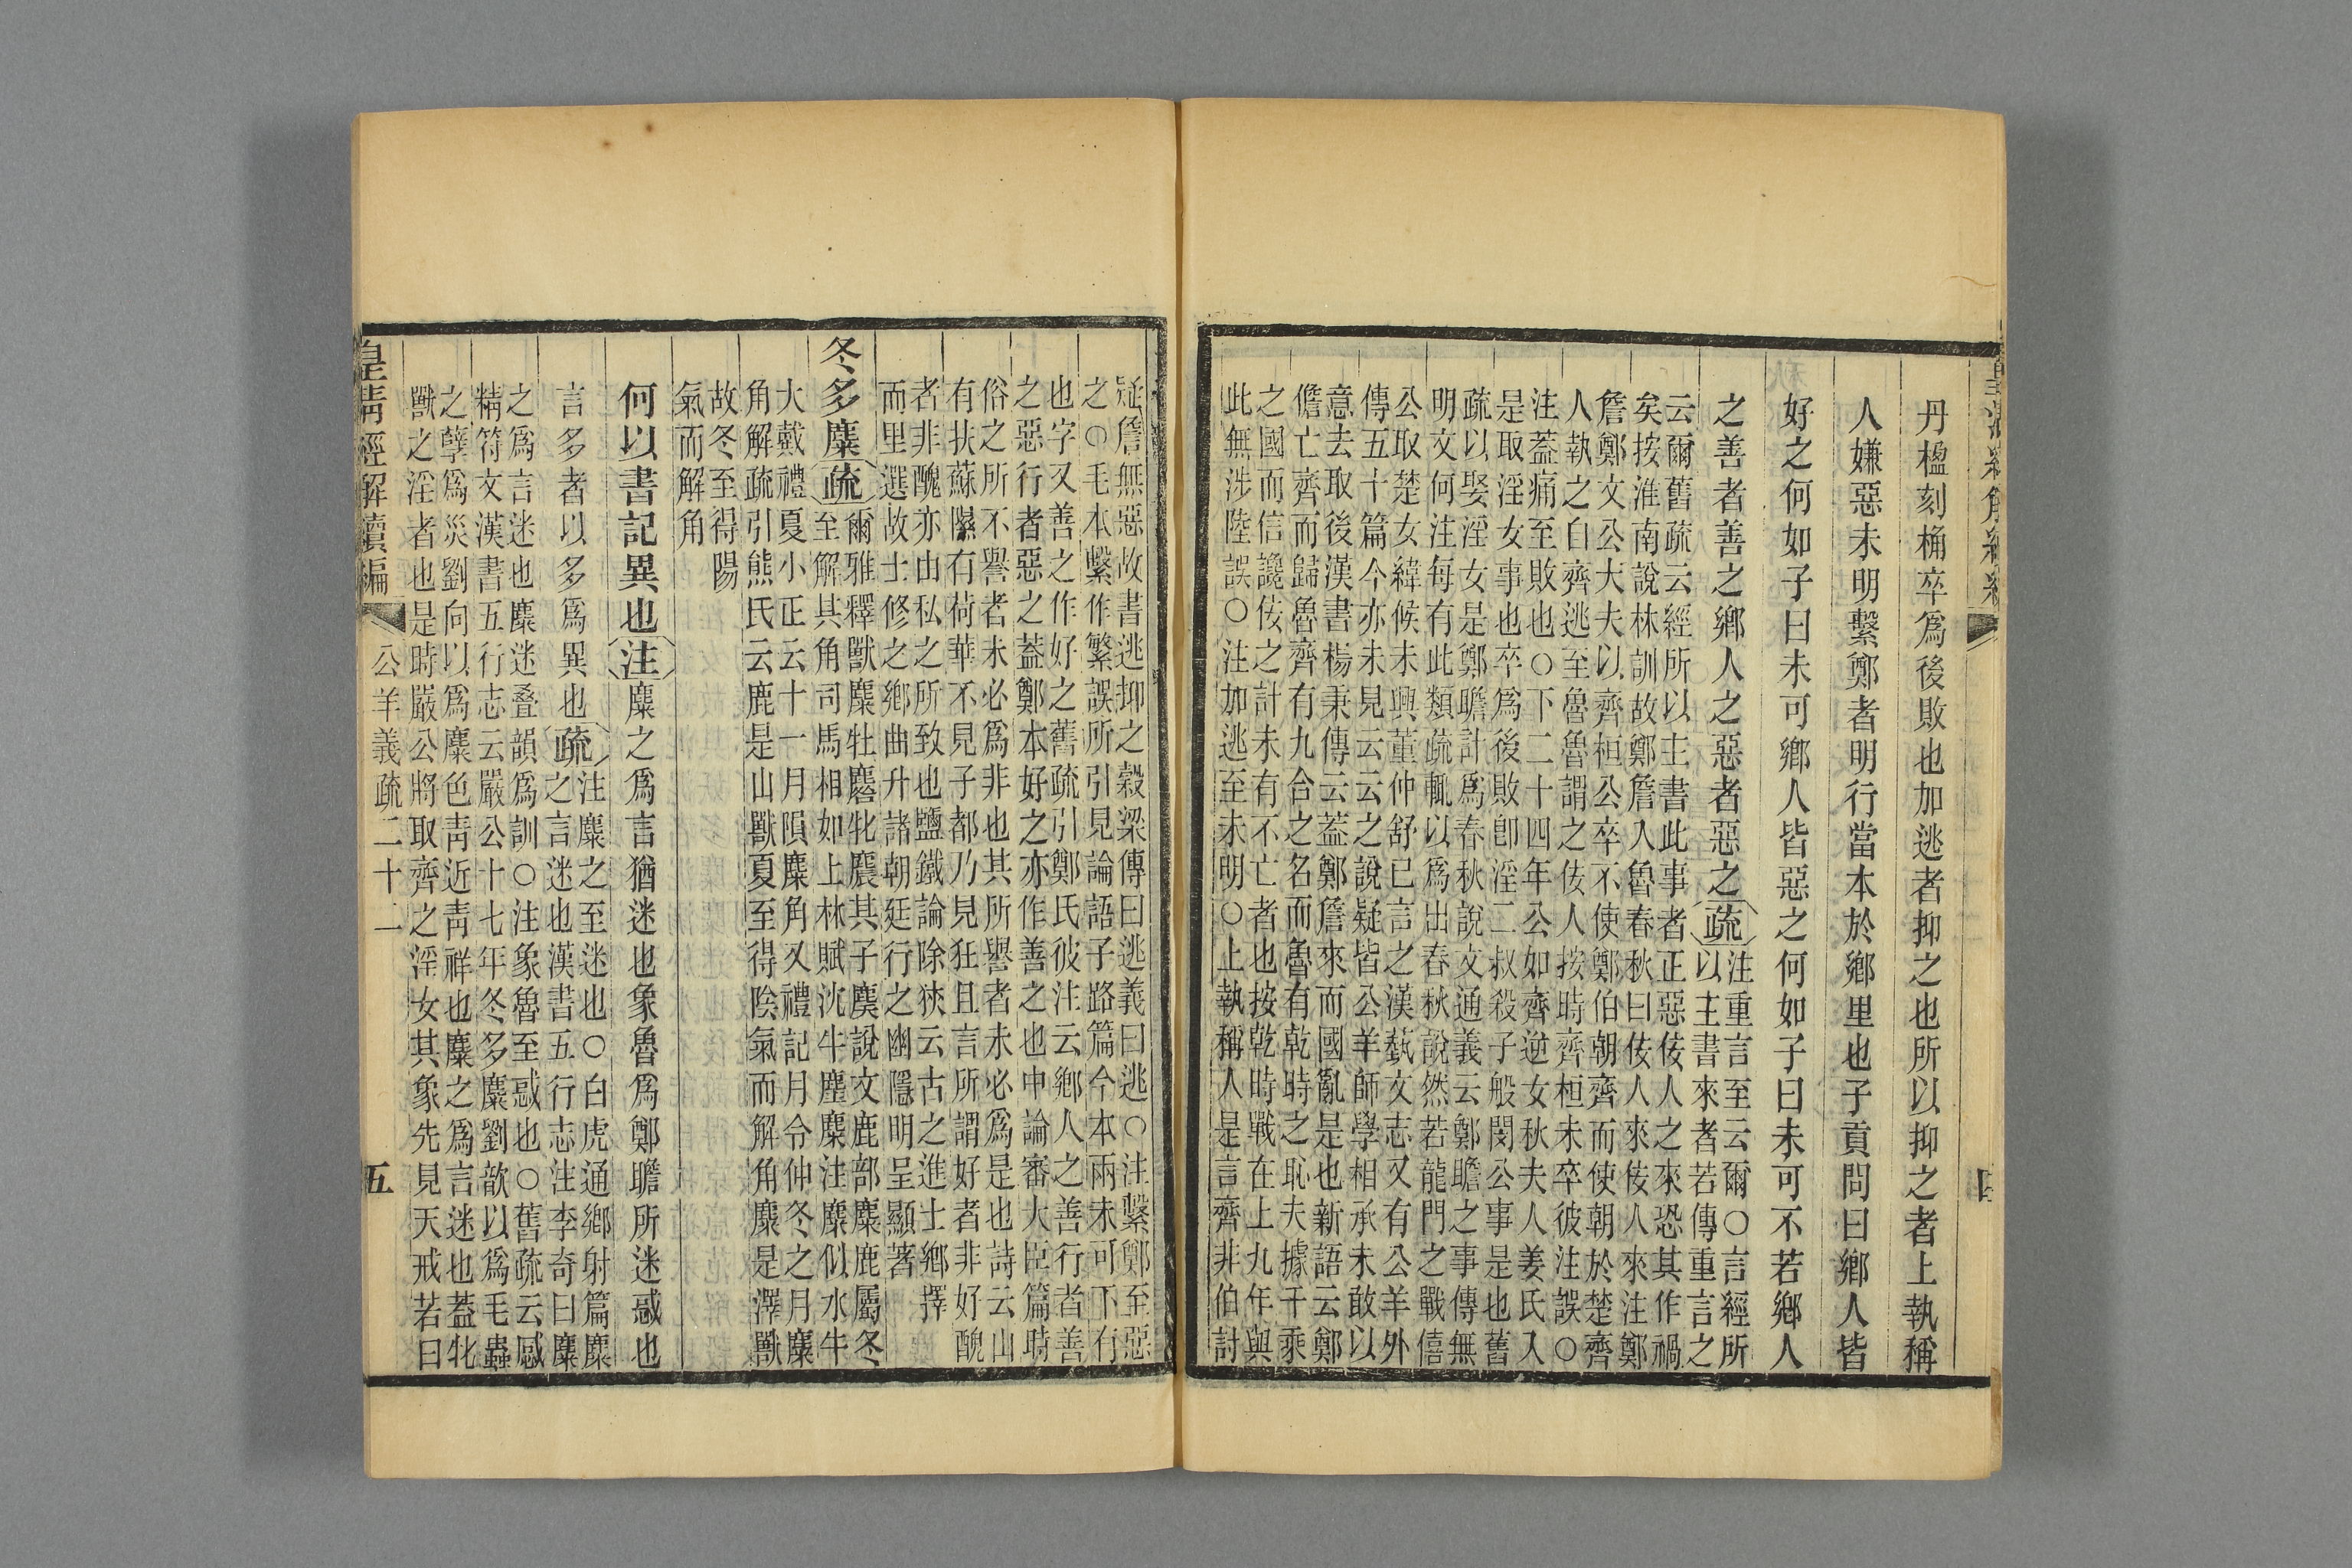 丹楹刻桷卒爲後敗也加逃者抑之也所以抑之者上執稱
人嫌惡未明繫鄭者明行當本於鄉里也子貢問曰鄉人皆
好之何如子曰未可鄉人皆惡之何如子曰未可不若鄉人
之善者善之鄉人之惡者惡之疏
注重言至云爾○言經所
以主書來者若傳重言之
云爾舊疏云經所以主書此事者正惡佞人之來恐其作禍
矣按淮南說林訓故鄭詹入魯春秋曰佞人來佞人來注鄭
詹鄭文公大夫以齊桓公卒不使鄭伯朝齊而使朝於楚齊
人執之自齊逃至魯魯謂之佞人按時齊桓未卒彼注誤○
注蓋痛至敗也○下二十四年公如齊逆女秋夫人姜氏入
是取淫女事也卒爲後敗卽淫二叔殺子般閔公事是也舊
疏以娶淫女是鄭瞻計爲春秋說文通義云鄭瞻之事傳無
明文何注每有此類疏輒以爲出春秋說然若龍門之戰僖
公取楚女緯候未興董仲舒已言之漢藝文志又有公羊外
傳五十篇今亦未見云云之說疑皆公羊師學相承未敢以
意去取後漢書楊秉傳云蓋鄭詹來而國亂是也新語云鄭
儋亡齊而歸魯齊有九合之名而魯有乾時之恥夫據千乘
之國而信讒佞之計未有不亡者也按乾時戰在上九年與
此無涉陸誤○注加逃至未明○上執稱人是言齊非伯討
疑詹無惡故書逃抑之穀梁傳曰逃義曰逃○注繫鄭至惡
之○毛本繫作繁誤所引見論語子路篇今本兩未可下有
也字又善之作好之舊疏引鄭氏彼注云鄉人之善行者善
之惡行者惡之蓋鄭本好之亦作善之也申論審大臣篇時
俗之所不譽者未必爲非也其所譽者未必爲是也詩云山
有扶蘇隰有荷華不見子都乃見狂且言所謂好者非好醜
者非醜亦由私之所致也鹽鐵論除狹云古之進士鄉擇
而里選故士修之鄉曲升諸朝廷行之幽隱明呈顯著
冬多麋疏
爾雅釋獸麋牡麔牝麎其子䴠說文鹿部麋鹿屬冬
至解其角司馬相如上林賦沈牛麈麋注麋似水牛
大戴禮夏小正云十一月隕麋角又禮記月令仲冬之月麋
角解疏引熊氏云鹿是山獸夏至得陰氣而解角麋是澤獸
故冬至得陽
氣而解角
何以書記異也注麋之爲言猶迷也象魯爲鄭瞻所迷惑也
言多者以多爲異也疏
注麋之至迷也○白虎通鄉射篇麋
之言迷也漢書五行志注李奇曰麋
之爲言迷也麋迷疊韻爲訓○注象魯至惑也○舊疏云感
精符文漢書五行志云嚴公十七年冬多麋劉歆以爲毛蟲
之孽爲災劉向以爲麋色靑近靑祥也麋之爲言迷也蓋牝
獸之淫者也是時嚴公將取齊之淫女其象先見天戒若曰
皇清經解續編
公羊義疏二十二
五